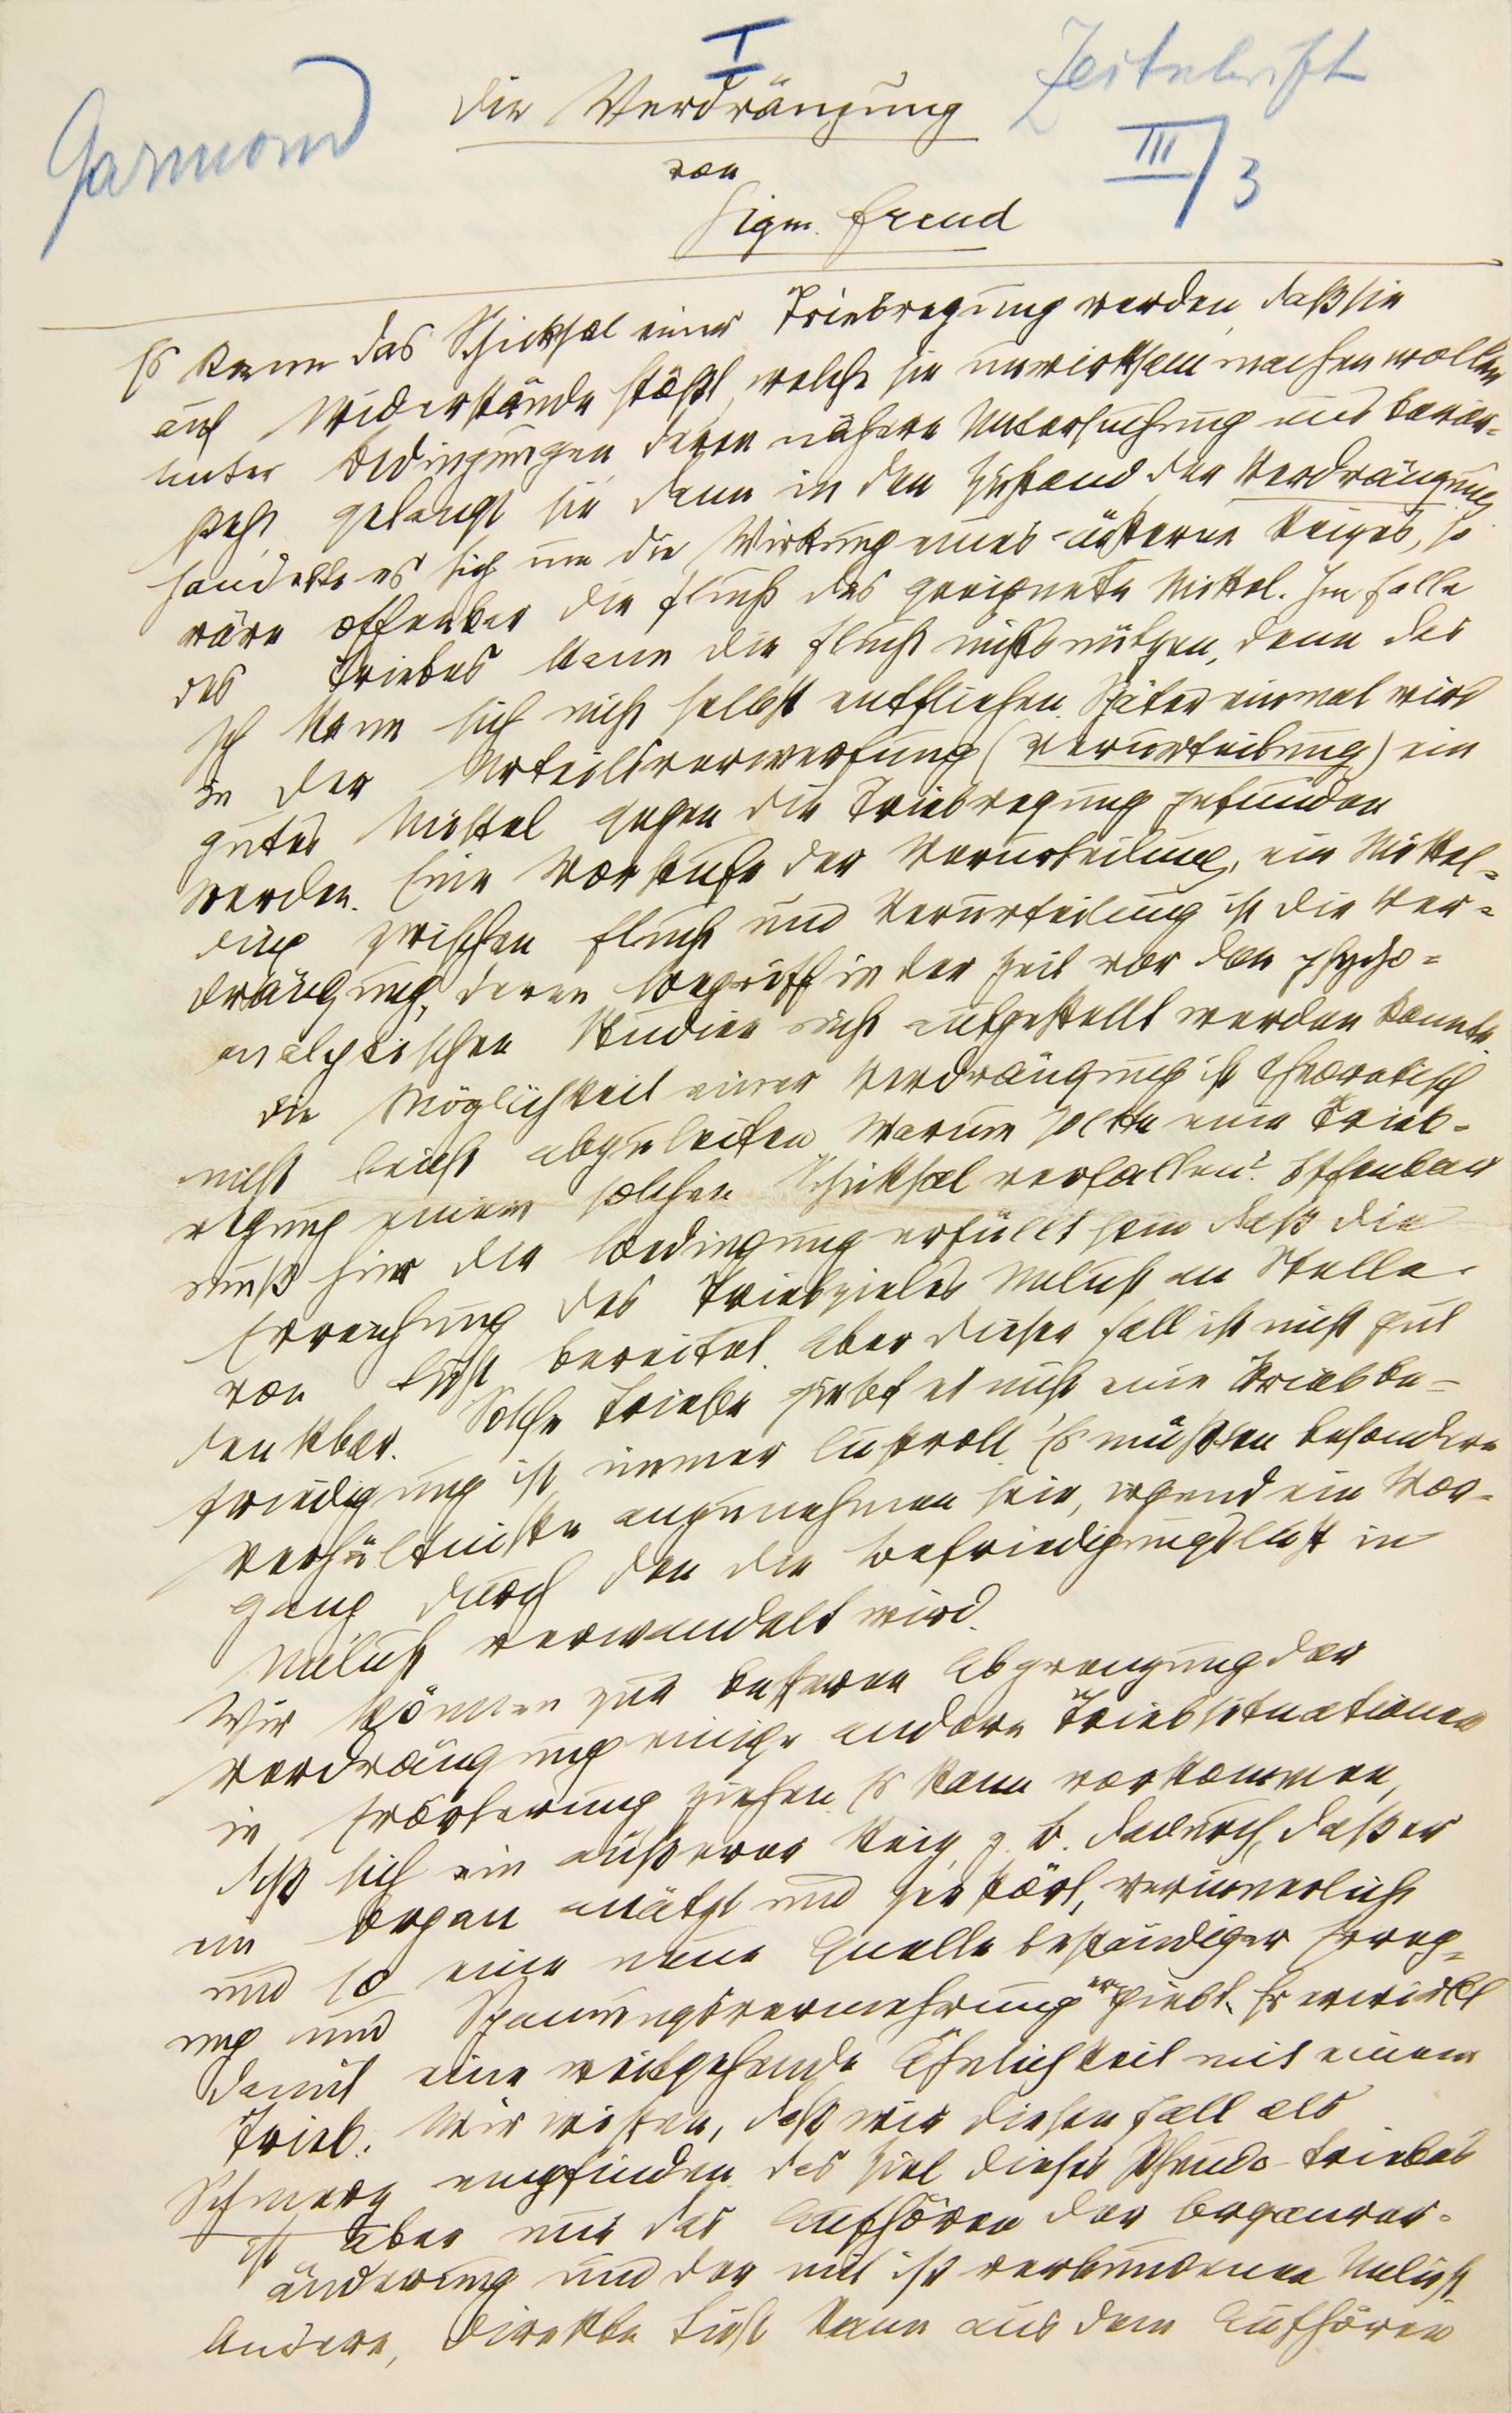 I
Garmond
Zeitschrift
III/3
Die Verdrängung
von
Sigm. Freud
Es kann das Schicksal einer Triebregung werden, daß sie
auf Widerstände stößt, welche sie unwirksam machen wollen
Unter Bedingungen, deren nähere Untersuchung uns bevor-
steht, gelangt sie dann in den Zustand der Verdrängung.
Handelte es sich um die Wirkung eines äußeren Reizes, so
wäre offenbar die Flucht das geeignete Mittel. Im Falle
des Triebes kann die Flucht nichts nützen, denn das
Ich kann sich nicht selbst entfliehen. Später einmal wird
in der Urteilsverwerfung (Verurteilung) ein
gutes Mittel gegen die Triebregung gefunden
werden. Eine Vorstufe der Verurteilung, ein Mittel-
ding zwischen Flucht und Verurteilung ist die Ver-
drängung, deren Begriff in der Zeit vor den psycho-
analytischen Studien nicht aufgestellt werden konnte.
Die Möglichkeit einer Verdrängung ist theoretisch
nicht leicht abzuleiten. Warum sollte eine Trieb-
regung einem solchen Schicksal verfallen? Offenbar
muß hier die Bedingung erfüllt sein, daß die
Erreichung des Triebzieles Unlust an Stelle
von Lust bereitet. Aber dieser Fall ist nicht gut
denkbar. Solche Triebe giebt es nicht, eine Triebbe-
friedigung ist immer lustvoll. Es müßten besondere
Verhältnisse anzunehmen sein, irgend ein Vor-
gang durch den die Befriedigungslust in
Unlust verwandelt wird.
Wir können zur besseren Abgrenzung der
Verdrängung einige andere Triebsituationen
in Erörterung ziehen. Es kann vorkommen,
daß sich ein äußerer Reiz, z. B. dadurch, daß er
ein Organ anätzt und zerstört, verinnerlicht
und so eine neue Quelle beständiger Erreg-
ung und Spannungsvermehrung ergiebt. Er erwirbt
damit eine weitgehende Ähnlichkeit mit einem
Trieb. Wir wissen, daß wir diesen Fall als
Schmerz empfinden. Das Ziel dieses Pseudo-Triebes
ist aber nur das Aufhören der Organver-
änderung und der mit ihr verbundenen Unlust.
Andere, direkte Lust kann aus dem Aufhören